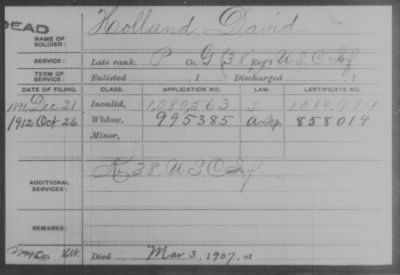 DEAD
NAME OF SOLDIER: Holland, David
SERVICE: Late rank, P Co. G, 38 Reg't U.S.C. Inf
TERM OF SERVICE: Enlisted , 1 Discharged , 1
DATE OF FILING. CLASS. APPLICATION NO. LAW. CERTIFICATE NO.
Dec 21 Invalid, 1,080,563
1912 Oct 26 Widow, 995385 858019
Minor,
ADDITIONAL SERVICES: K 38 U.S.C. Inf
REMARKS:
Died Mar 3, 1907, at